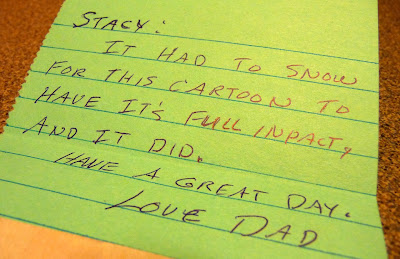 STACY:
IT HAD TO SNOW
FOR THIS CARTOON TO
HAVE IT'S FULL INPACT,
AND IT DID.
HAVE A GREAT DAY.
LOVE DAD